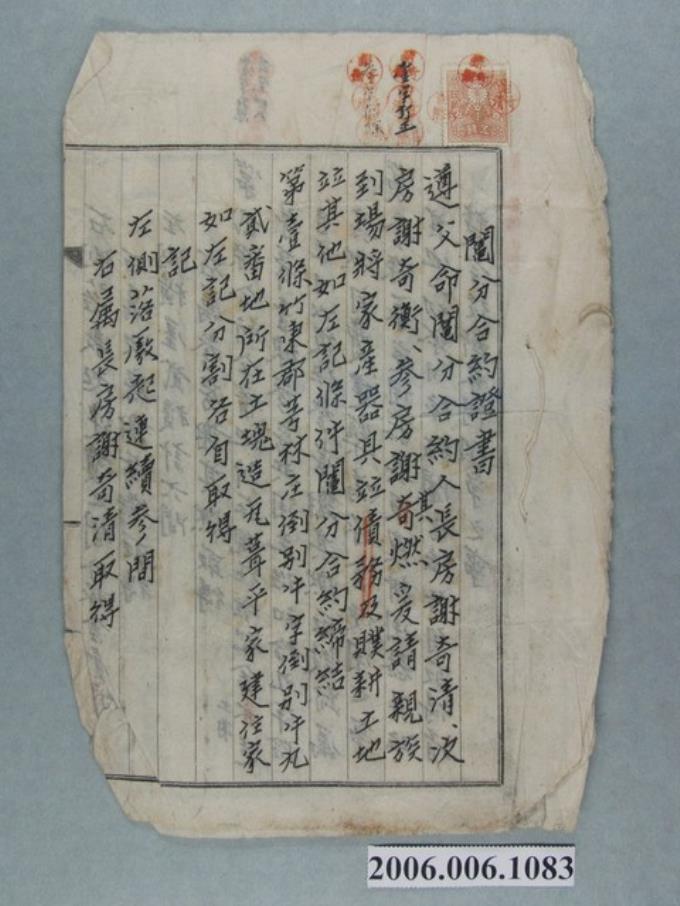 鬮分合約證書
遵父命鬮分合約人長房謝奇清、次
房謝奇衡、參房謝奇燃爰請親族
到場將家產器具竝其債務及贌耕土地
竝其他如左記條件鬮分合約締結
第壹條竹東郡芎林庄倒別牛字倒別牛九
貳番地所在土塊造瓦葺平家建住家
如左記分割各自取得
記
左側菸廠起連續參間
右屬長房謝奇清取得
壹字訂正
2006.006.1083